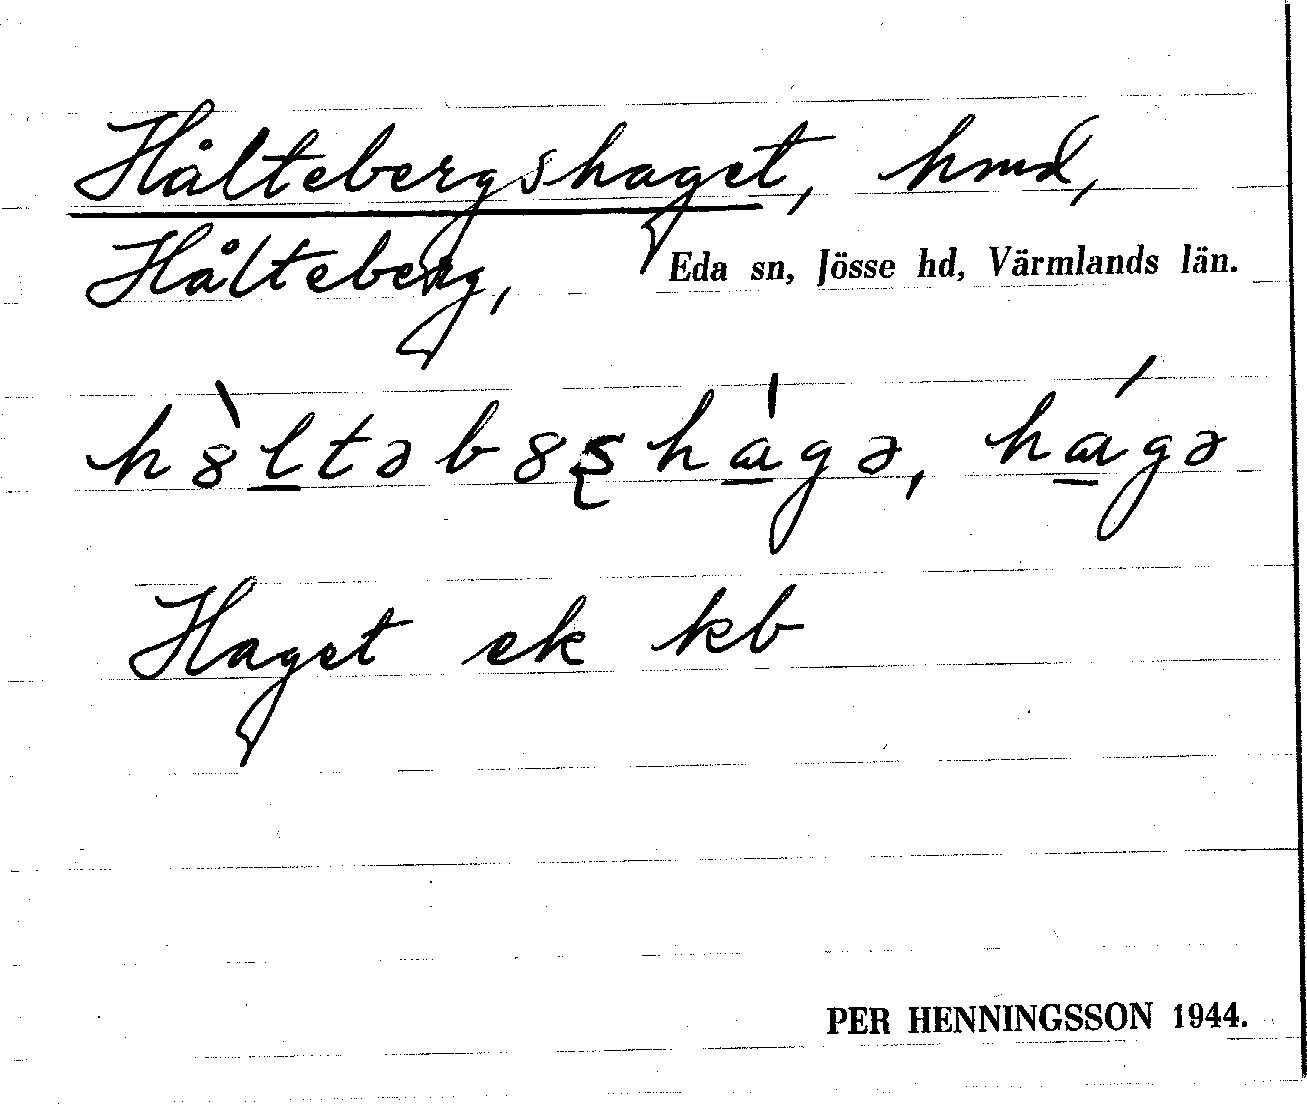 Håltebergshaget, hmd,
Hålteberg, Eda sn, Jösse hd, Värmlands län.
h8̀l̲təb8ʂha̲̍gə, há̲gə
Haget ek kb
PER HENNINGSSON 1944.